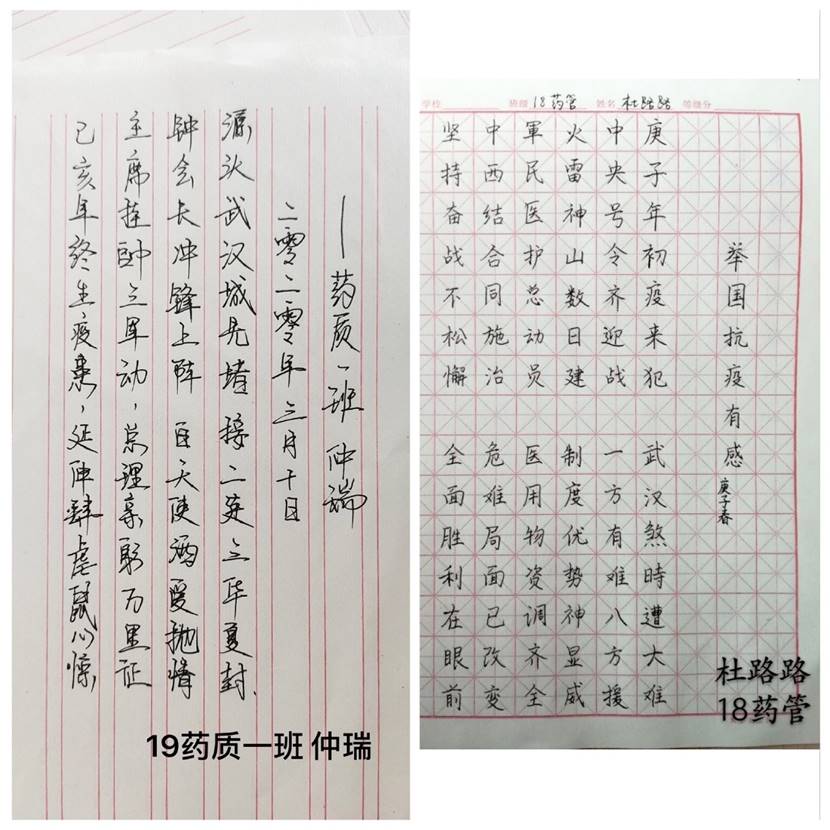 已亥年终生疫患，延伸肆虐鼠心惊
主席挂帥三军动，总理亲躬万里征
钟会长冲锋上阵 白天使洒爱抛情
源头武汉城先堵 接二连三华夏封、
二零二零年三月十日
——药质一班 仲瑞
19药质一班 仲瑞
学校 班级 18药管 姓名 杜路路 等级分
举国抗疫有感 庚子春
庚子年初疫来犯 武汉煞時遭大难
中央号令齐迎战 一方有难八方援
火雷神山数日建 制度优势神显威
軍民医护总动员 医用物资调齐全
中西结合同施治 危难局面已改变
坚持奋战不松懈 全面胜利在眼前
杜路路
18药管